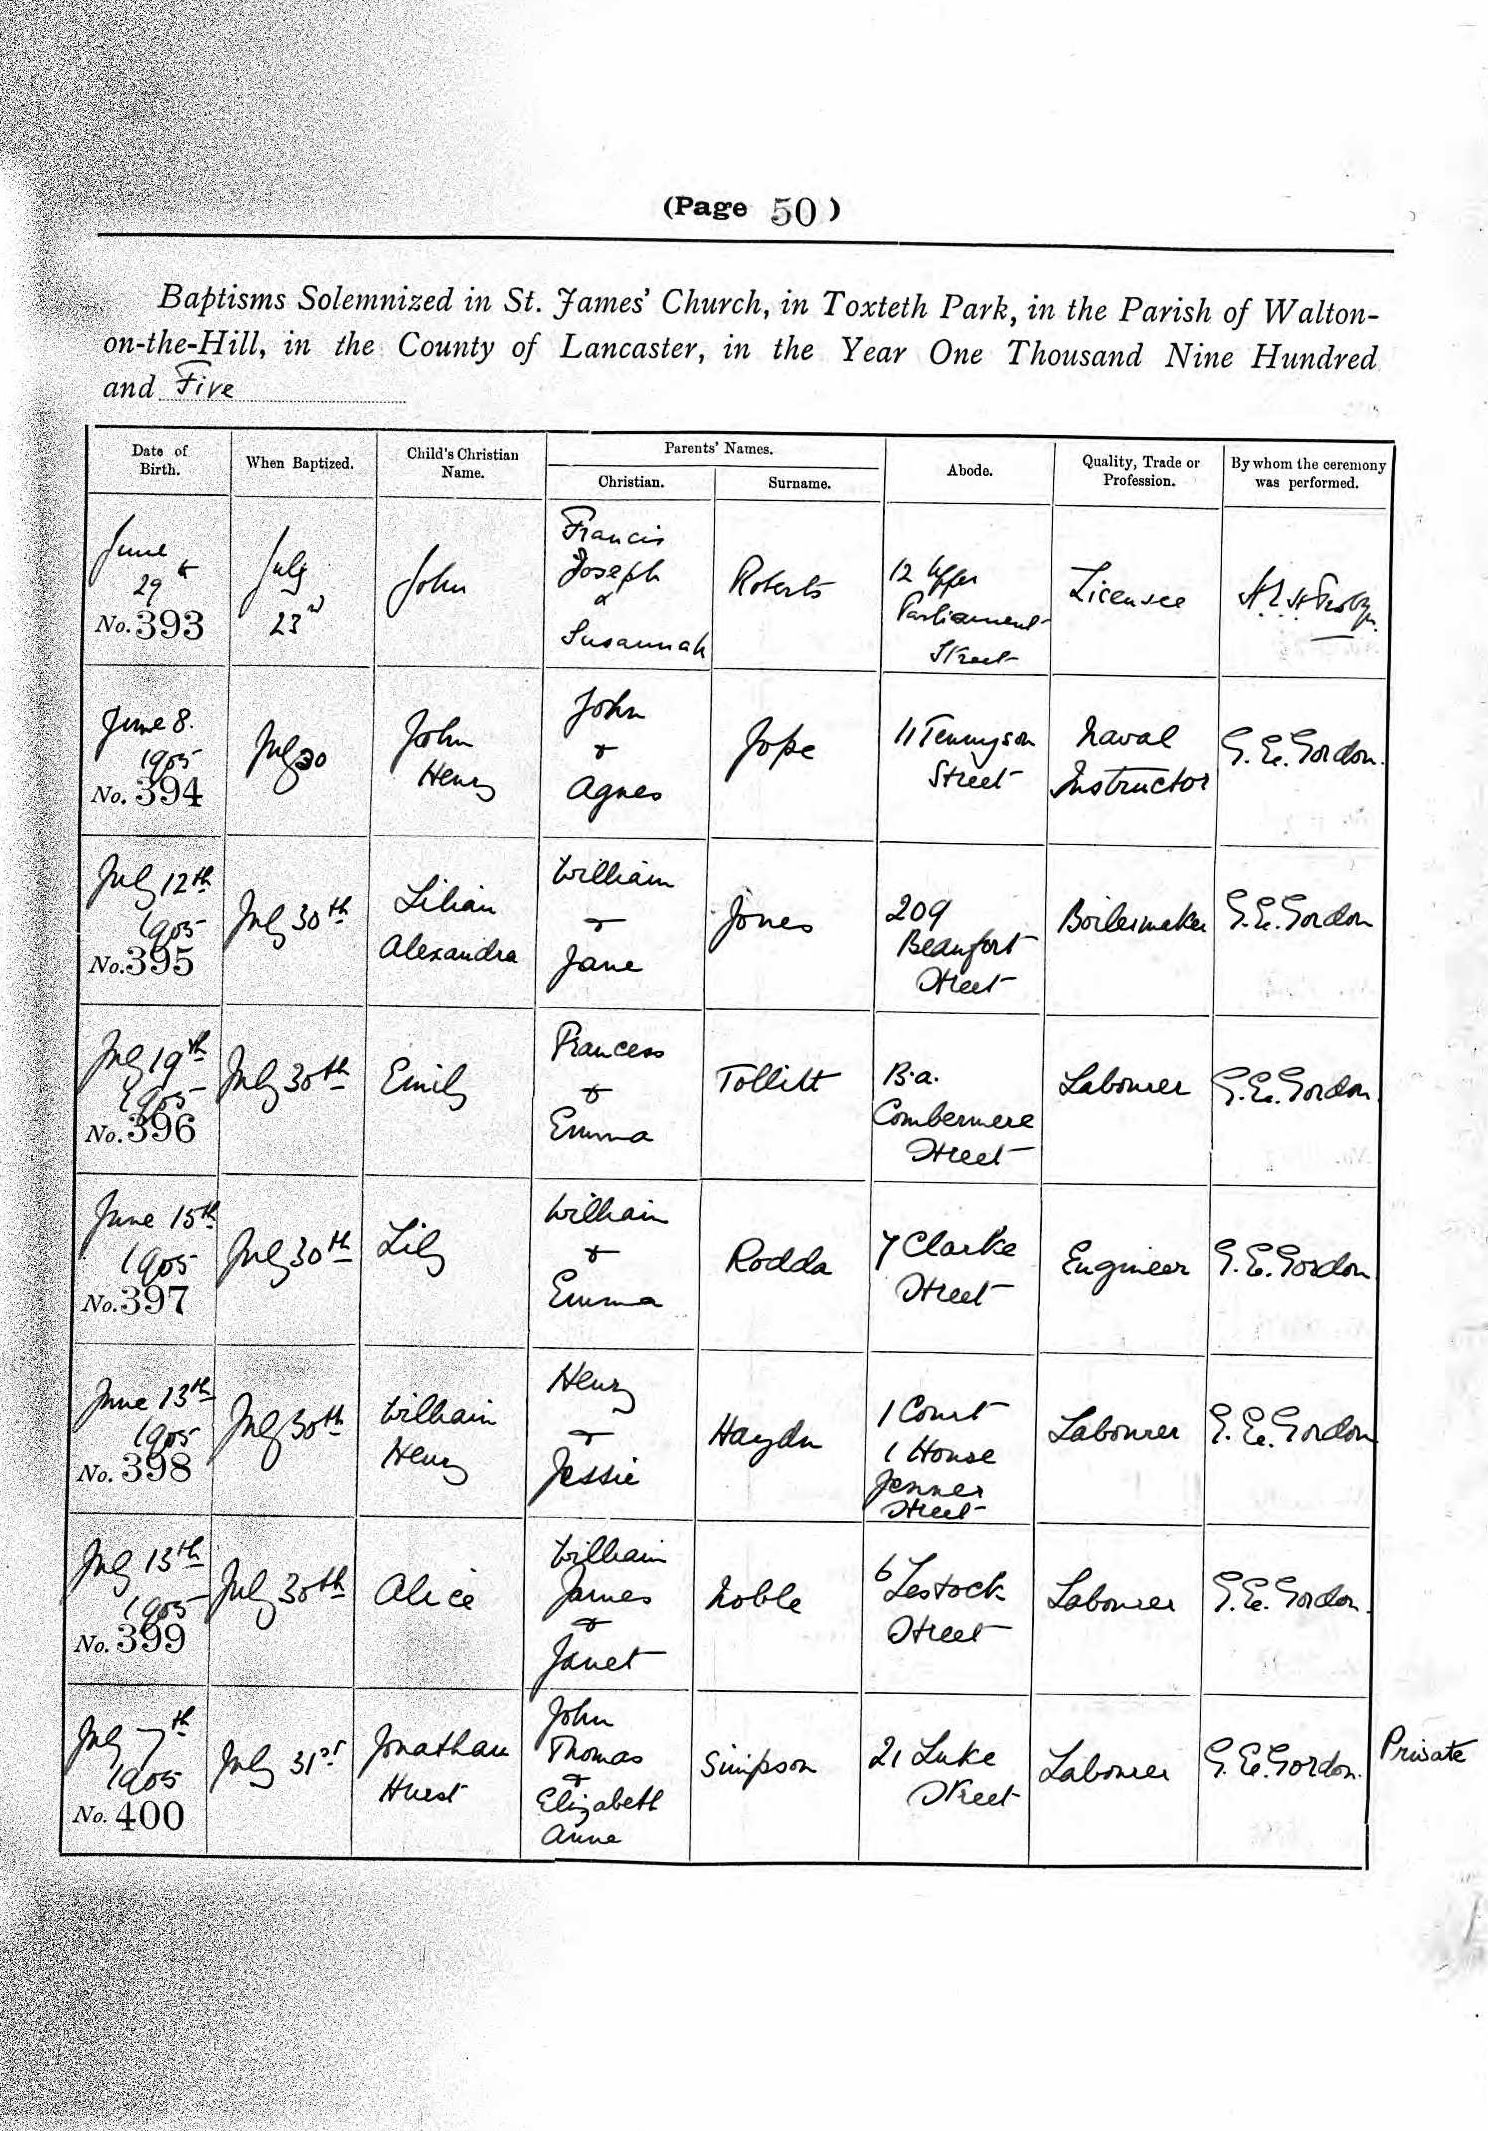 (Page 50)
Baptisms Solemnized in St. James' Church, in Toxteth Park, in the Parish of Walton-
on-the-Hill, in the County of Lancaster, in the Year One Thousand Nine Hundred
and Five
Date of Birth. When Baptized. Child's Christian Name. Parents' Names. Christian. Surname. Abode. Quality, Trade or Profession. By whom the ceremony was performed.
June 29th
No. 393
July 23rd
John
Francis
Joseph
&
Susannah
Roberts
12 Upper
Parliament
Street
Licensee
June 8.
1905
No. 394
July 30
John
Henry
John
&
Agnes
Jope
11 Tennyson
Street
Naval
Instructor
G. E. Gordon.
July 12th
1905
No. 395
July 30th
Lilian
Alexandra
William
&
Jane
Jones
209
Beaufort
Street
Boilermaker
G. E. Gordon
July 19th
1905
No. 396
July 30th
Emily
Francess
&
Emma
Tollitt
B.a.
Combermere
Street
Labourer
G. E. Gordon
June 15th
1905
No. 397
July 30th
Lily
William
&
Emma
Rodda
7 Clarke
Street
Engineer
G. E. Gordon
June 13th
1905
No. 398
July 30th
William
Henry
Henry
&
Jessie
Haydn
1 Court
1 House
Jenner
Street
Labourer
G. E. Gordon
July 13th
1905
No. 399
July 30th
Alice
William
James
&
Janet
Noble
6 Lestock
Street
Labourer
G. E. Gordon.
July 7th
1905
No. 400
July 31st
Jonathan
Hurst
John
Thomas
&
Elizabeth
Anne
Simpson
21 Luke
Street
Labourer
G. E. Gordon.
Private